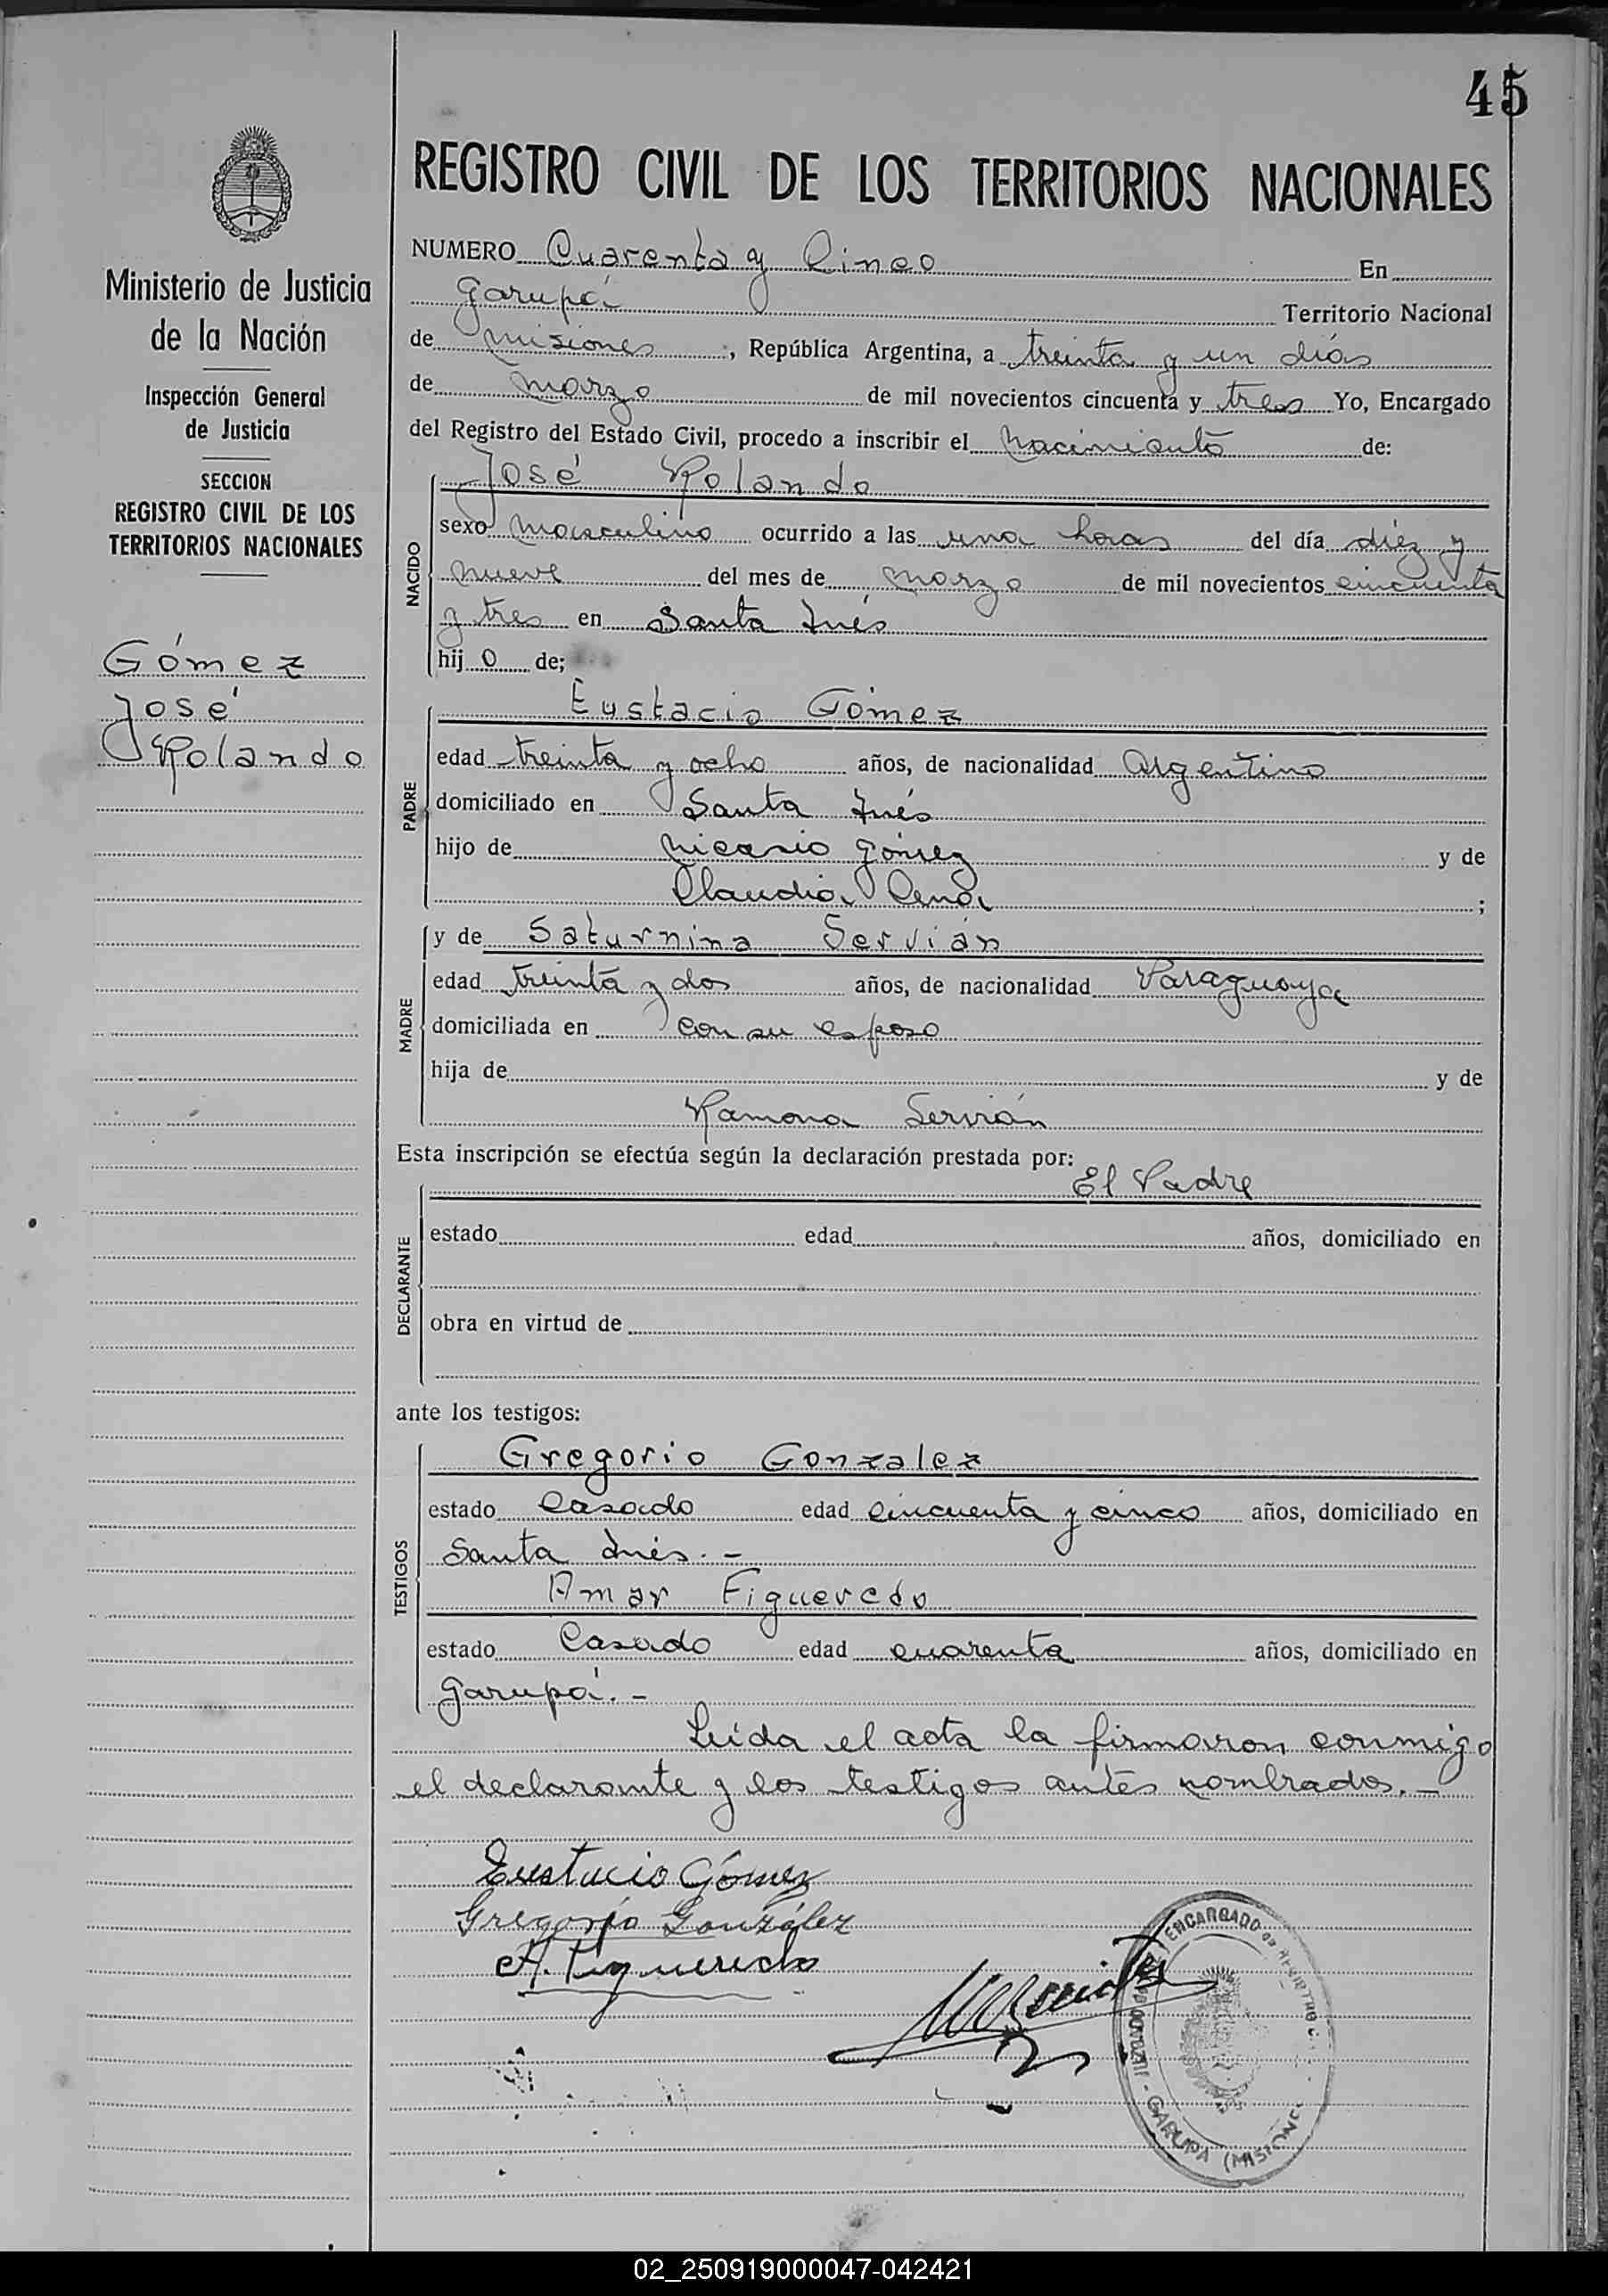 45
REGISTRO CIVIL DE LOS TERRITORIOS NACIONALES
Ministerio de Justicia
de la Nación
Inspección General
de Justicia
SECCION
REGISTRO CIVIL DE LOS
TERRITORIOS NACIONALES
Gómez
José
Rolando
NUMERO Cuarenta y Cinco En
Garupá Territorio Nacional
de Misiones, República Argentina, a treinta y un días
de Marzo de mil novecientos cincuenta y tres Yo, Encargado
del Registro del Estado Civil, procedo a inscribir el Nacimiento de:
NACIDO
José Rolando
sexo Masculino ocurrido a las una horas del día diéz y
nueve del mes de Marzo de mil novecientos cincuenta
y tres en Santa Inés
hij o de;
PADRE
Eustacio Gómez
edad treinta y ocho años, de nacionalidad Argentino
domiciliado en Santa Inés
hijo de Nicasio Gómez y de
Claudia ;
MADRE
y de Saturnina Servián
edad treinta y dos años, de nacionalidad Paraguaya
domiciliada en con su esposo
hija de y de
Ramona Servián
Esta inscripción se efectúa según la declaración prestada por:
El Padre
DECLARANTE
estado edad años, domiciliado en
obra en virtud de
ante los testigos:
TESTIGOS
Gregorio Gonzalez
estado Casado edad cincuenta y cinco años, domiciliado en
Santa Inés.-
Amar Figueredo
estado Casado edad cuarenta años, domiciliado en
Garupá.-
Leida el acta la firmaron conmigo
el declarante y los testigos antes nombrados.-
Eustacio Gómez
Gregorio González
A. Figueredo
ENCARGADO REGISTRO
GARUPA (MISIONES
02_250919000047-042421